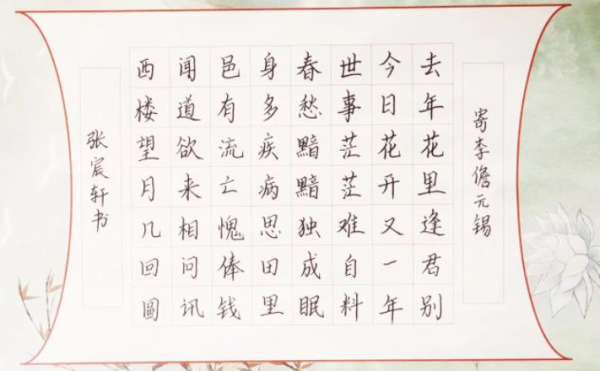 寄李儋元锡
去年花里逢君别
今日花开又一年
世事茫茫难自料
春愁黯黯独成眠
身多疾病思田里
邑有流亡愧俸钱
闻道欲来相问讯
西楼望月几回圆
张宸轩书